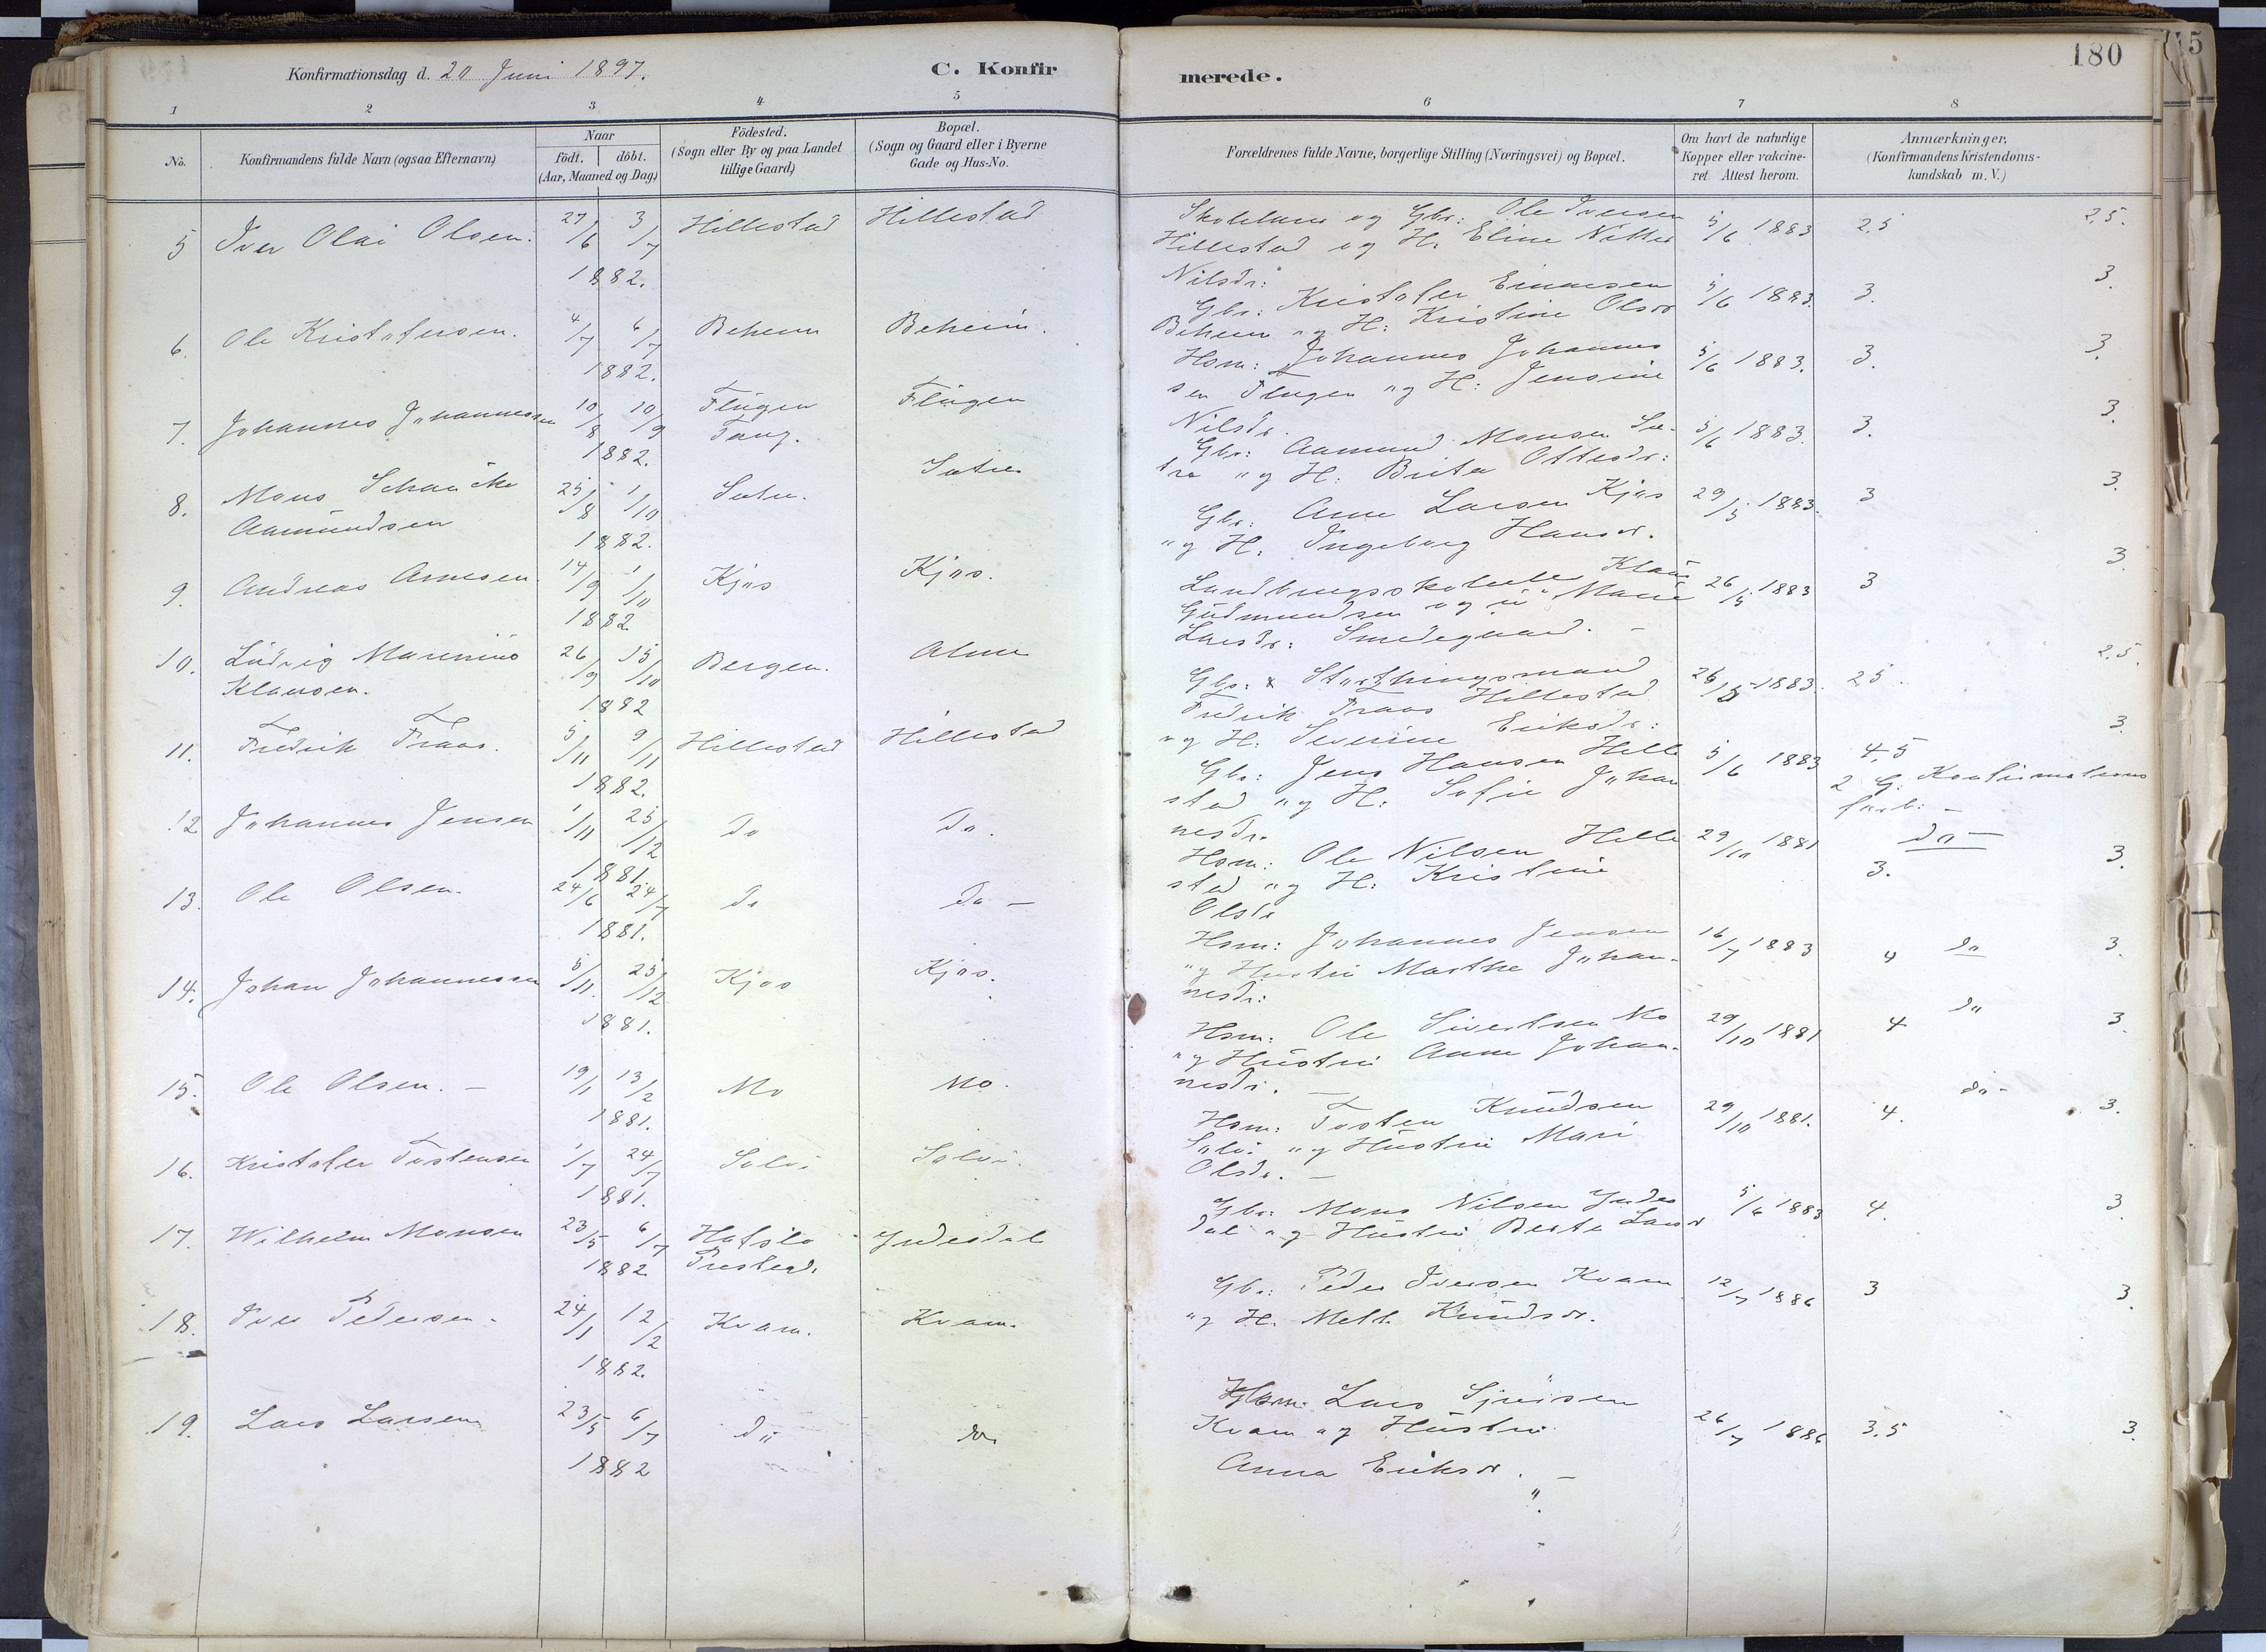 180
Konfirmationsdag d. 20 Juni 1897.
C. Konfirmerede.
1 2 3 4 5 6 7 8
No.
Konfirmandens fulde Navn (ogsaa Efternavn)
Naar
födt. döbt.
(Aar, Maaned og Dag)
Födested.
(Sogn eller By og paa Landet
tillige Gaard)
Bopæl.
(Sogn og Gaard eller i Byerne
Gade og Hus-No.
Forældrenes fulde Navne, borgerlige Stilling (Næringsvei) og Bopæl.
Om havt de naturlige
Kopper eller vakcine-
ret. Attest herom.
Anmærkninger,
(Konfirmandens Kristendoms-
kundskab m. V.)
5 Iver Olai Olsen. 27/6 3/7 1882. Hillestad Hillestad
og Gbr: Ole Iversen
Hillestad og H: Eline
Nilsdr: 5/6 1883 2.5 2.5.
6. Ole Kristofersen. 4/7 6/7 1882. Beheim Beheim.
Gbr: Kristofer Einarsen
Beheim og H: Kristine Olsdr 5/6 1883. 3. 3.
7. Johannes Johannessen 10/8 10/9 1882. Flugen Flugen
Hsm: Johannes Johannes
sen Flugen og H: Jensine
Nilsdr. 5/6 1883. 3. 3.
8. Mons Schancke
Aamundsen 25/8 1/10 1882.
Gbr: Aamund Monsen
og H: Brita Ottesdr: 5/6 1883. 3. 3.
9. Andreas Arnesen. 14/9 1/10 1882 Kjos Kjos.
Gbr: Arne Larsen Kjos
og H: Ingeborg Hansdr. 29/5 1883. 3 3.
10. Ludvig Marenius
Klausen. 26/9 15/10 1882 Bergen. Alme
Klaus
Gudmundsen og Marie
Larsdr: Smedegaard. 26/5 1883 3 3.
11. Fredrik Fraas. 5/11 9/11 1882. Hillestad Hillestad
Gbr: & Storthingsmand
Fredrik Fraas Hillestad
og H: Severine Eriksdr: 26/5 1883. 2.5. 2.5.
12 Johannes Jensen 1/11 25/12 1881. Do Do.
Gbr: Jens Hansen Hille
stad og H: Sofie Johan
nesdr. 5/6 1883 4.5 3.
2 G. Konfirmations
forb: –
13. Ole Olsen. 24/6 24/7 1881. Do Do –
Hsm: Ole Nilsen Hille
stad og H: Kristine
Olsdr 29/10 1881 do – 3. 3.
14. Johan Johannessen 5/11. 25/12 1881. Kjos Kjos.
Hsm: Johannes Jensen
og Hustru Marthe Johan-
nesdr: 16/7 1883 4 do 3.
15. Ole Olsen. – 19/1 13/2 1881. Mo Mo.
Hsm: Ole Sivertsen Mo
og Hustru Anne Johan-
nesdr. – 29/10 1881 4 do 3.
16. Kristofer Tostensen 1/7 24/7 1881. Solvi Solvi.
Hsm: Tosten Knudsen
Solvi og Hustru Mari
Olsdr. – 29/10 1881. 4. do – 3.
17. Wilhelm Monsen 23/5 6/7 1882 Hafslo
Presteg. Indesdal
Gbr: Mons Nilsen Indes
dal og Hustru Berte Larsdr 5/6 1883 4. 3.
18. Iver Pedersen. 24/1 12/2 1882. Kvam. Kvam.
Gbr: Peder Iversen Kvam
og H. Mett. Knudsdr. 12/7 1886 3 3.
19. Lars Larsen 23/5 6/7 1882 do do
Hsm: Lars Sjursen
Kvam og Hustru
Anna Eriksdr. – 26/7 1886 3.5 3.